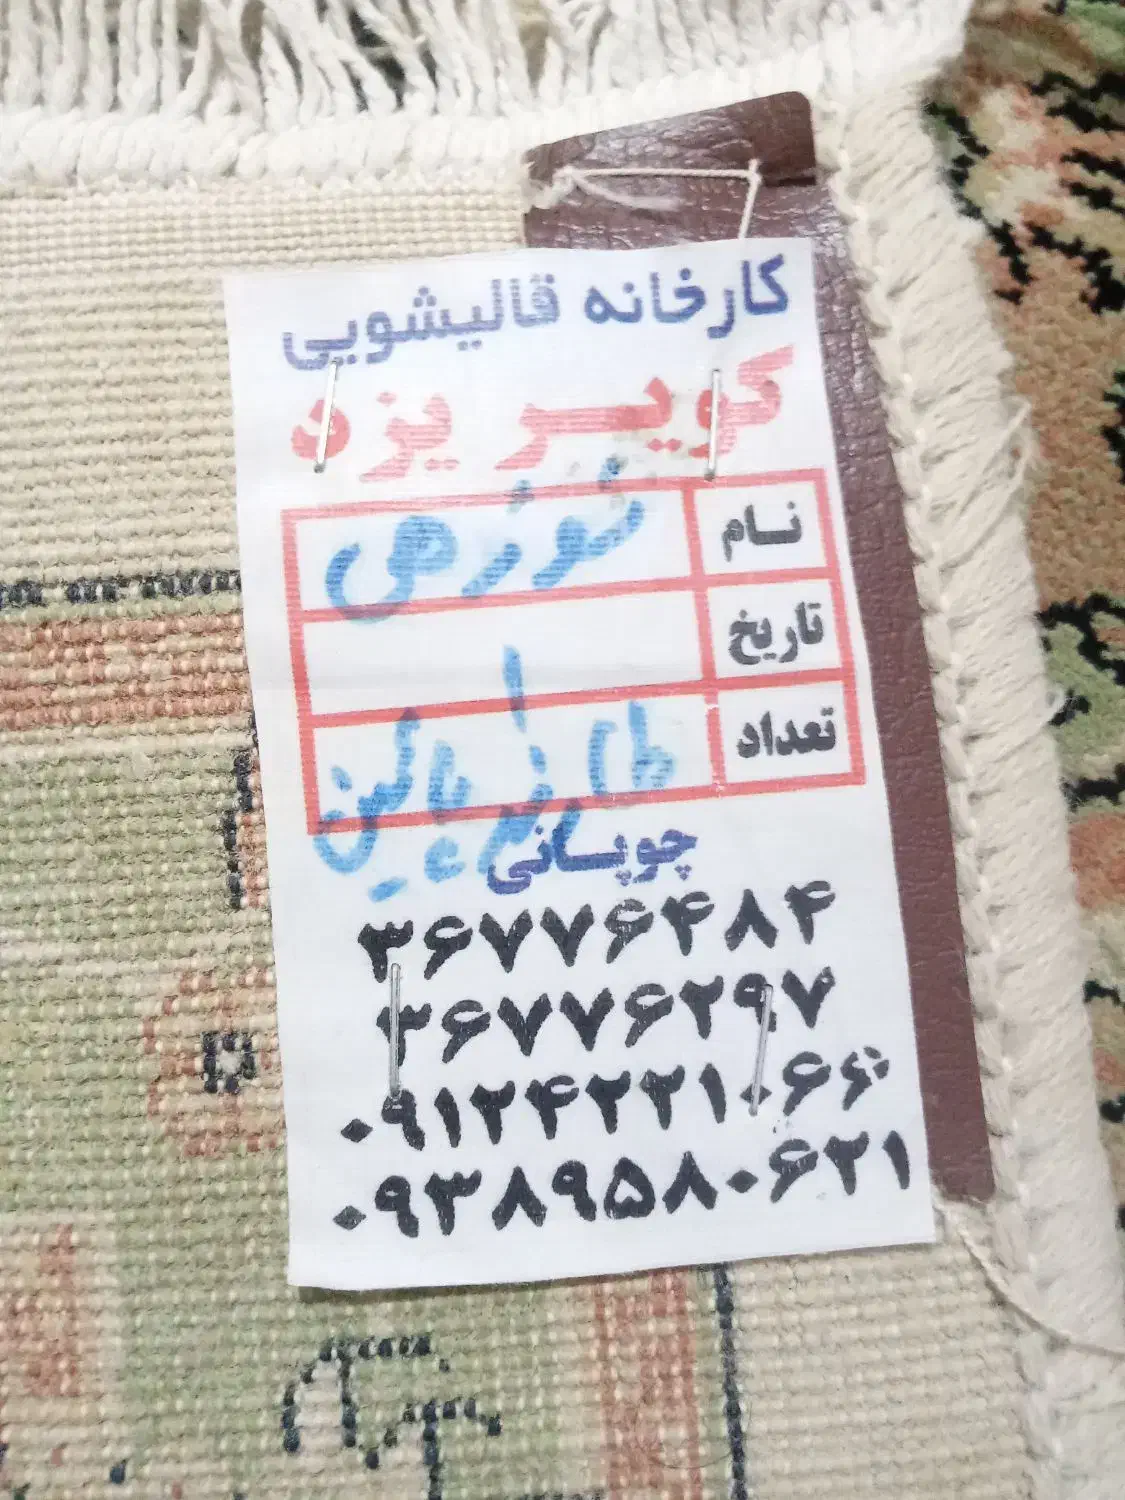 کارخانه قالیشویی
کویر یزد
نام
تاریخ
تعداد
چوپانی
۳۶۷۷۶۴۸۴
۳۶۷۷۶۲۹۷
۰۹۱۲۴۲۲۱۰۶۶
۰۹۳۸۹۵۸۰۶۲۱